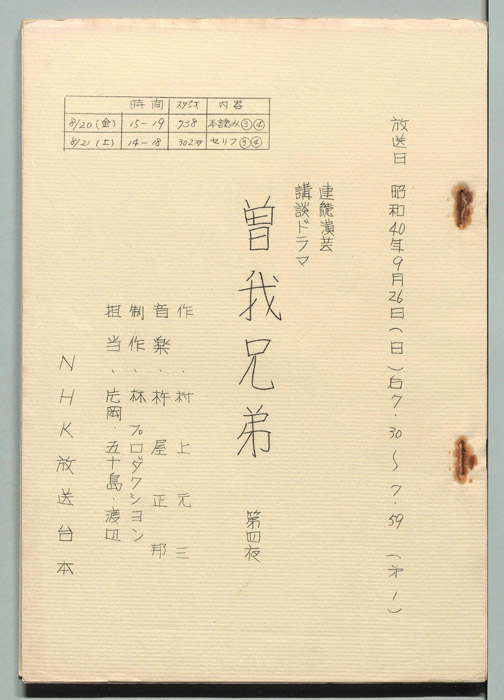 放送日 昭和40年9月26日(日)自7.30〜7.59 (第1)
連続演芸
講談ドラマ
曽我兄弟 第四夜
作・村上元三
音楽・杵屋正邦
制作・林プロダクション
担当・片岡・五十島・渡辺
NHK放送台本
時間 スタジオ 内容
8/20(金) 15-19 738 本読み③④
8/21(土) 14-18 302 セリフ③④